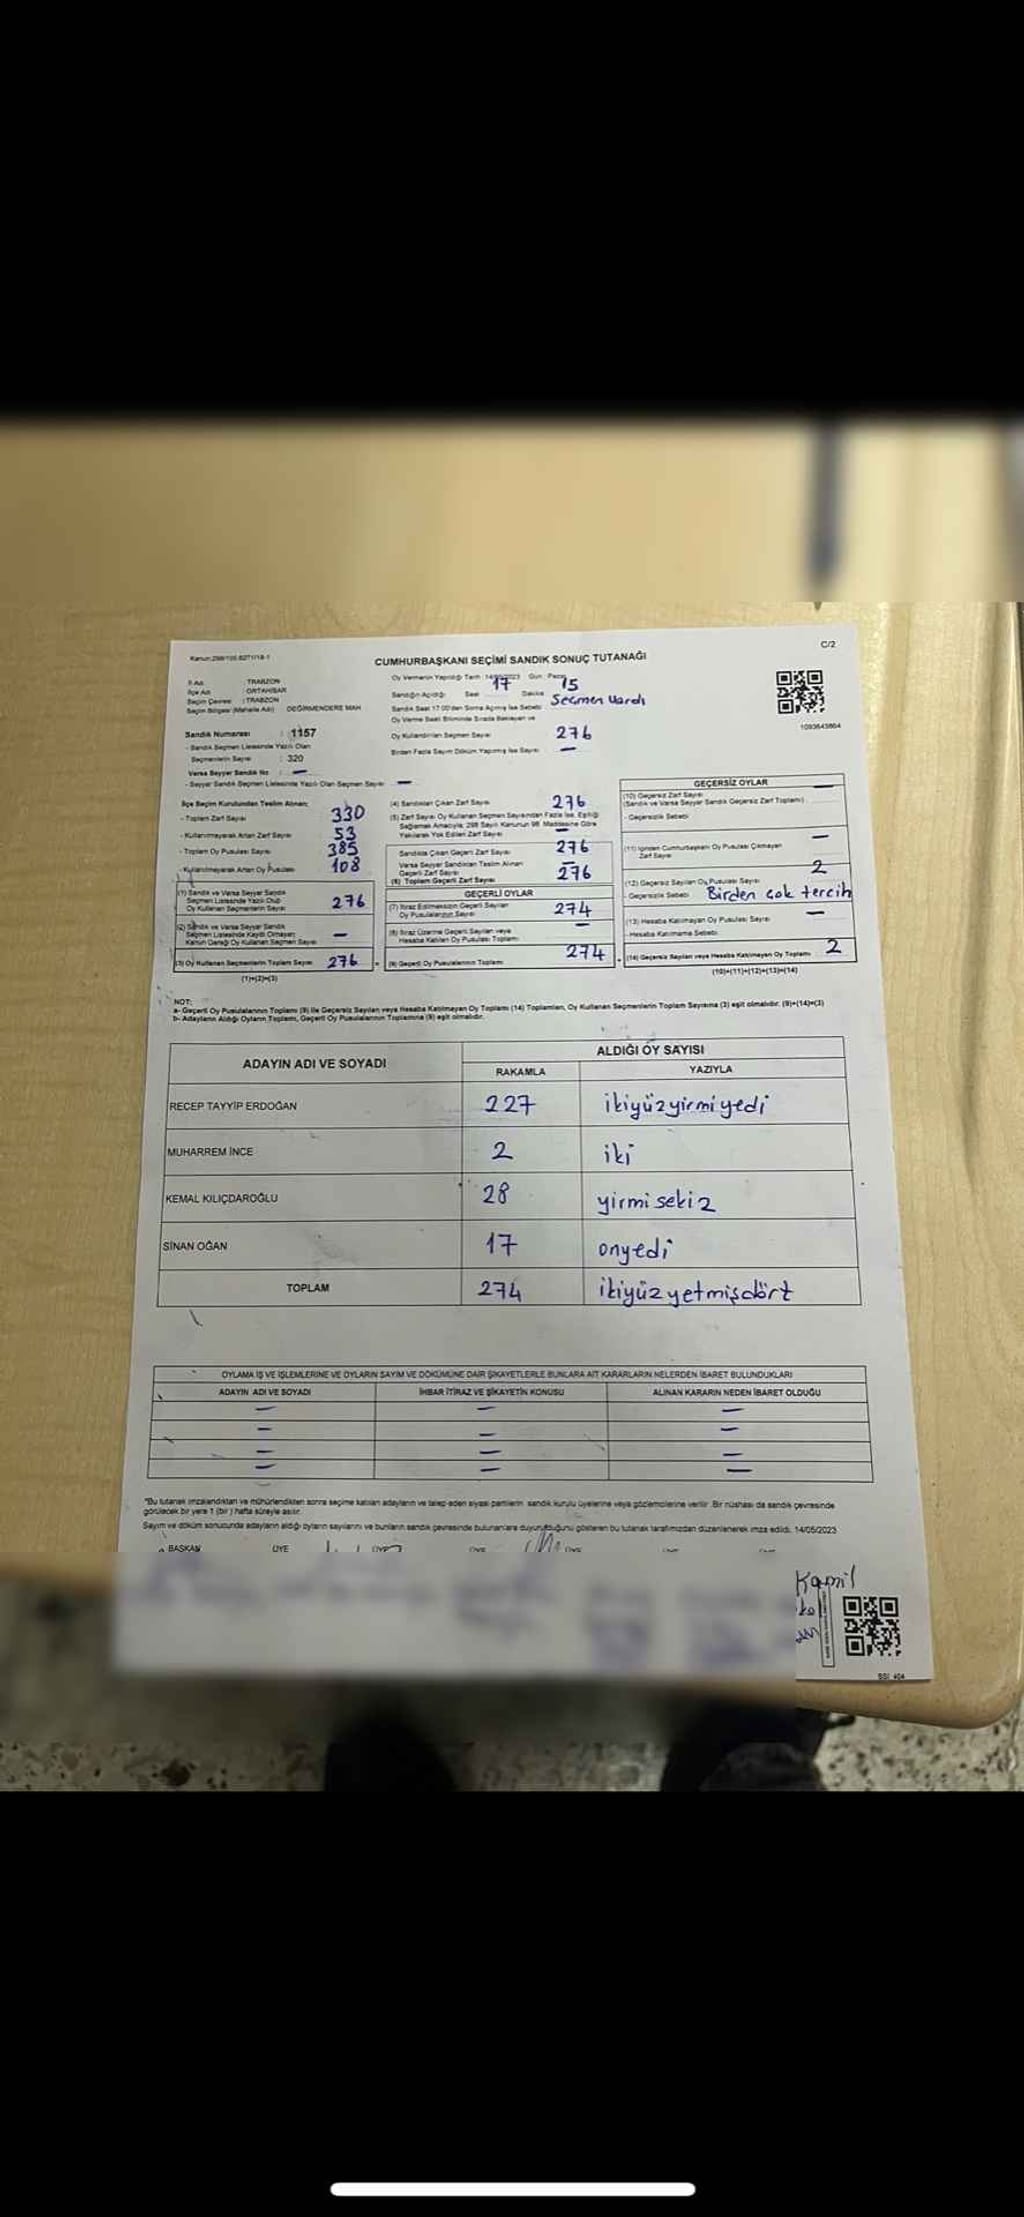 Kanun:298/105.6271/18-1
C/2
CUMHURBAŞKANI SEÇİMİ SANDIK SONUÇ TUTANAĞI
İl Adı : TRABZON
İlçe Adı : ORTAHİSAR
Seçim Çevresi : TRABZON
Seçim Bölgesi (Mahalle Adı) DEĞİRMENDERE MAH
Sandık Numarası : 1157
- Sandık Seçmen Listesinde Yazılı Olan
Seçmenlerin Sayısı : 320
Varsa Seyyar Sandık No : —
- Seyyar Sandık Seçmen Listesinde Yazılı Olan Seçmen Sayısı —
Oy Vermenin Yapıldığı Tarih : 14/05/2023 Gün : Pazar
Sandığın Açıldığı Saat 17 Dakika 15
Sandık Saat 17.00'den Sonra Açılmış İse Sebebi Seçmen vardı
Oy Verme Saati Bitiminde Sırada Bekleyen ve
Oy Kullandırılan Seçmen Sayısı 276
Birden Fazla Sayım Döküm Yapılmış İse Sayısı —
1093643864
İlçe Seçim Kurulundan Teslim Alınan:
- Toplam Zarf Sayısı 330
- Kullanılmayarak Artan Zarf Sayısı 53
- Toplam Oy Pusulası Sayısı 385
- Kullanılmayarak Artan Oy Pusulası 108
(1) Sandık ve Varsa Seyyar Sandık
Seçmen Listesinde Yazılı Olup
Oy Kullanan Seçmenlerin Sayısı 276
(2) Sandık ve Varsa Seyyar Sandık
Seçmen Listesinde Kayıtlı Olmayan
Kanun Gereği Oy Kullanan Seçmen Sayısı —
(3) Oy Kullanan Seçmenlerin Toplam Sayısı 276
(1)+(2)=(3)
(4) Sandıktan Çıkan Zarf Sayısı 276
(5) Zarf Sayısı Oy Kullanan Seçmen Sayısından Fazla İse, Eşitliği
Sağlamak Amacıyla, 298 Sayılı Kanunun 98. Maddesine Göre
Yakılarak Yok Edilen Zarf Sayısı —
Sandıkta Çıkan Geçerli Zarf Sayısı 276
Varsa Seyyar Sandıktan Teslim Alınan
Geçerli Zarf Sayısı —
(6) Toplam Geçerli Zarf Sayısı 276
GEÇERLİ OYLAR
(7) İtiraz Edilmeksizin Geçerli Sayılan
Oy Pusulalarının Sayısı 274
(8) İtiraz Üzerine Geçerli Sayılan veya
Hesaba Katılan Oy Pusulası Toplamı —
(9) Geçerli Oy Pusulalarının Toplamı 274
GEÇERSİZ OYLAR
(10) Geçersiz Zarf Sayısı —
(Sandık ve Varsa Seyyar Sandık Geçersiz Zarf Toplamı)
- Geçersizlik Sebebi
(11) İçinden Cumhurbaşkanı Oy Pusulası Çıkmayan
Zarf Sayısı —
(12) Geçersiz Sayılan Oy Pusulası Sayısı 2
- Geçersizlik Sebebi Birden çok tercih
(13) Hesaba Katılmayan Oy Pusulası Sayısı —
Hesaba Katılmama Sebebi
(14) Geçersiz Sayılan veya Hesaba Katılmayan Oy Toplamı 2
(10)+(11)+(12)+(13)=(14)
NOT:
a- Geçerli Oy Pusulalarının Toplamı (9) ile Geçersiz Sayılan veya Hesaba Katılmayan Oy Toplamı (14) Toplamları, Oy Kullanan Seçmenlerin Toplam Sayısına (3) eşit olmalıdır. (9)+(14)=(3)
b- Adayların Aldığı Oyların Toplamı, Geçerli Oy Pusulalarının Toplamına (9) eşit olmalıdır.
ADAYIN ADI VE SOYADI ALDIĞI OY SAYISI
RAKAMLA YAZIYLA
RECEP TAYYİP ERDOĞAN 227 ikiyüzyirmiyedi
MUHARREM İNCE 2 iki
KEMAL KILIÇDAROĞLU 28 yirmi sekiz
SİNAN OĞAN 17 onyedi
TOPLAM 274 ikiyüzyetmişdört
OYLAMA İŞ VE İŞLEMLERİNE VE OYLARIN SAYIM VE DÖKÜMÜNE DAİR ŞİKAYETLERLE BUNLARA AİT KARARLARIN NELERDEN İBARET BULUNDUKLARI
ADAYIN ADI VE SOYADI İHBAR İTİRAZ VE ŞİKAYETİN KONUSU ALINAN KARARIN NEDEN İBARET OLDUĞU
— — —
— — —
— — —
— — —
"Bu tutanak imzalandıktan ve mühürlendikten sonra seçime katılan adayların ve talep eden siyasi partilerin sandık kurulu üyelerine veya gözlemcilerine verilir. Bir nüshası da sandık çevresinde
görülecek bir yere 1 (bir) hafta süreyle asılır.
Sayım ve döküm sonucunda adayların aldığı oyların sayılarını ve bunların sandık çevresinde bulunanlara duyurulduğunu gösteren bu tutanak tarafımızdan düzenlenerek imza edildi. 14/05/2023
BAŞKAN ÜYE ÜYE ÜYE ÜYE ÜYE ÜYE
Kamil
SSI 404